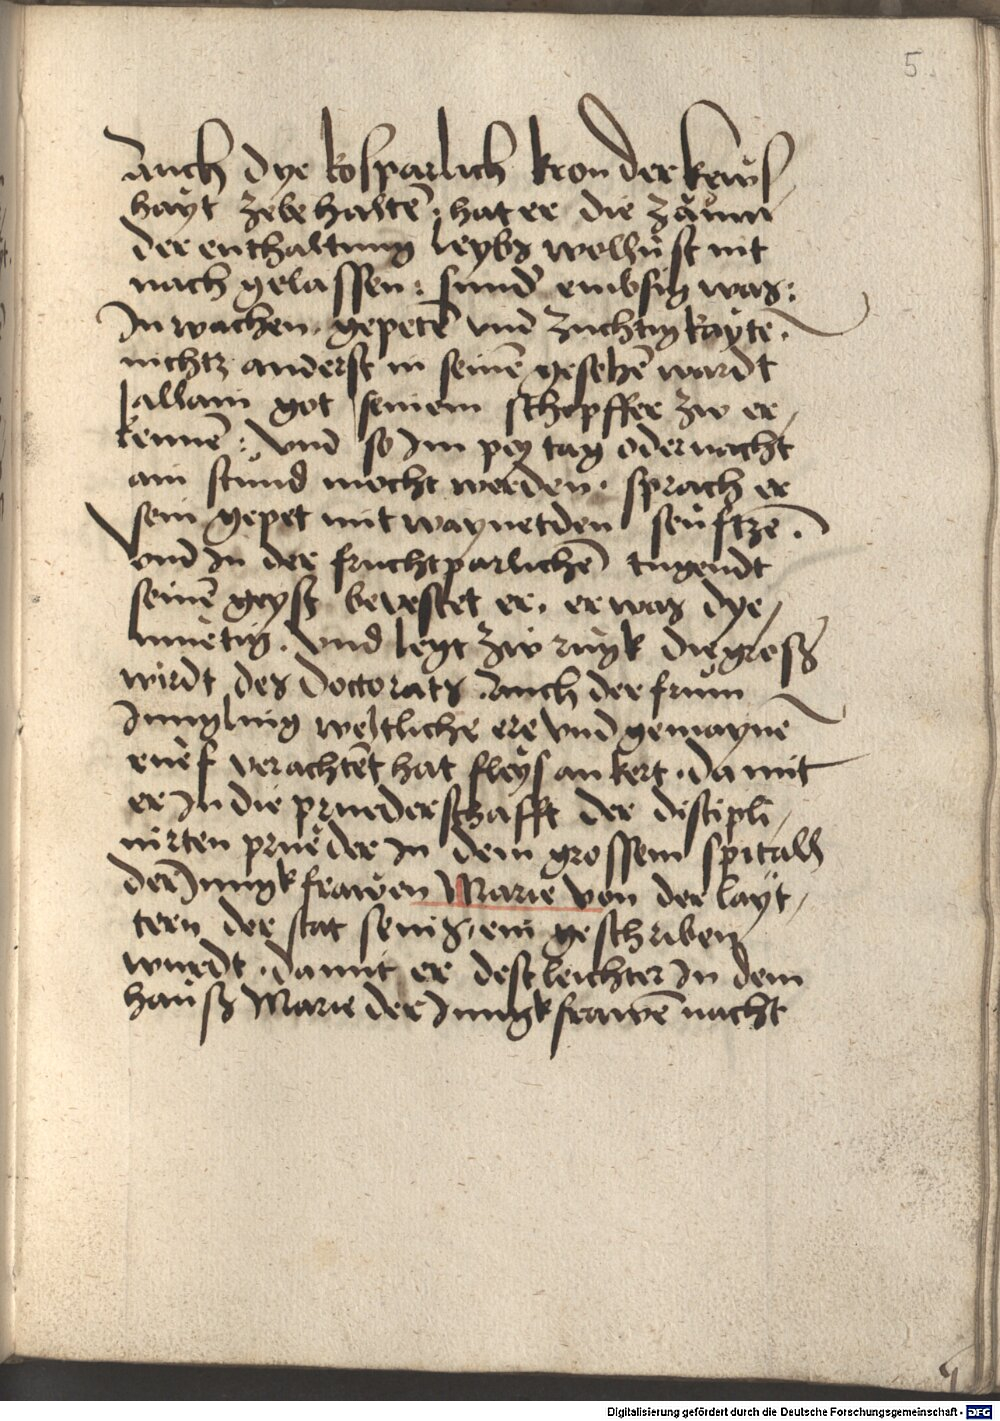 5
Auch dye kosparlich kron der kews/
hayt ze behaltē · hat er die zäwm
der enthaltung leybs wollust nit
nach gelassen : sunder embsig was :
In wachen · gepetē vnd zuchtigkayte ·
nichtz anderst in seinē gesehē wardt
allain got seinem schepffer zw er/
kennē : vnd so Im pey tag oder nacht
ain stund mocht werden · sprach er
sein gepet mit waynetden seuftzē ·
vnd In der fruchtparlichē tugendt
seinē geyst bevestet er · er was dye/
muetig · vnd legt zw rugk die gross
wirdt des Doctorats · Auch der frum
Jungling weltliche ere vnd gemayne
verachtet hat fleys an kert · damit
er In die pruederschafft der discipli/
nirten prueder In dem grossem spitall
der Jungkfrawen Marie von der layt/
tern der stat senis · ein geschriben
wurdt · damit er dest leichter In dem
hauss Marie der Jungkfrawē nacht
Digitalisierung gefördert durch die Deutsche Forschungsgemeinschaft - DFG